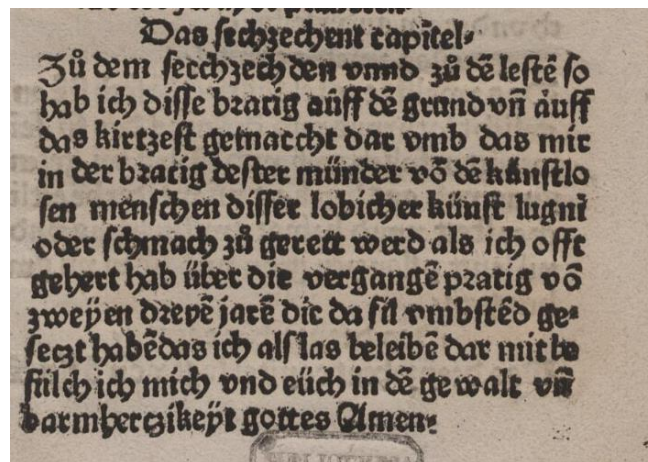 Das sechzechent capitel⸗
Zů dem secchzechden vnnd zů dē lestē so
hab ich disse bratig aüff dē grund vn̄ aüff
das kirtzest gemaccht dar vmb das mir
in der bratig dester münder vō dē künstlo
sen menschen disser lobicher künst lugni
oder schmach zů gerett werd als ich offt
gehert hab über die vergangē pratig vō
zweÿen dreyē jarē die da fil vmbstēd ge⸗
seczt habēdas ich als las beleibē dar mit be
filch ich mich vnd eüch in dē gewalt vn̄
barmherczikeÿt gottes Amen⸗